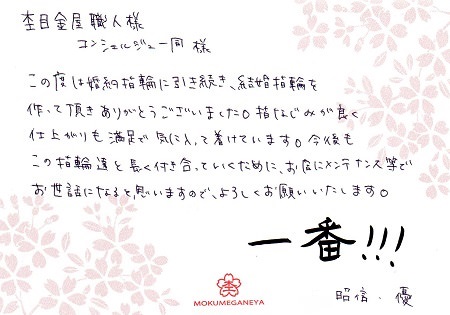 杢目金屋職人様
コンシェルジュ一同様
この度は婚約指輪に引き続き、結婚指輪を
作って頂きありがとうございました。指なじみが良く
仕上がりも満足で気に入って着けています。今後も
この指輪達と長く付き合っていくために、お店にメンテナンス等で
お世話になると思いますので、よろしくお願いいたします。
一番!!!
杢
MOKUMEGANEYA
昭信・優